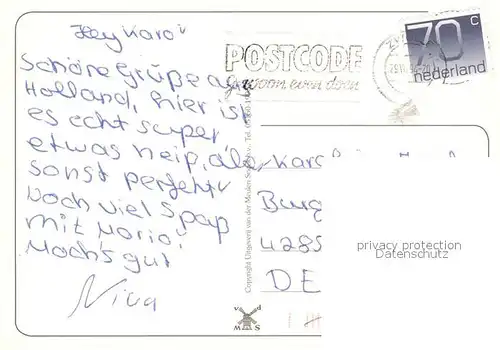 Hey Karo!
Schöne Grüße aus
Holland, hier ist
es echt super
etwas heiß, aber
sonst perfekt
Noch viel Spaß
mit Mario!
Mach's gut
Nina
POSTCODE
gewoon even doen
70 c
nederland
Karo
Burg
4285
DE
privacy protection
Datenschutz
Copyright Uitgeverij van der Meulen
v d
M S